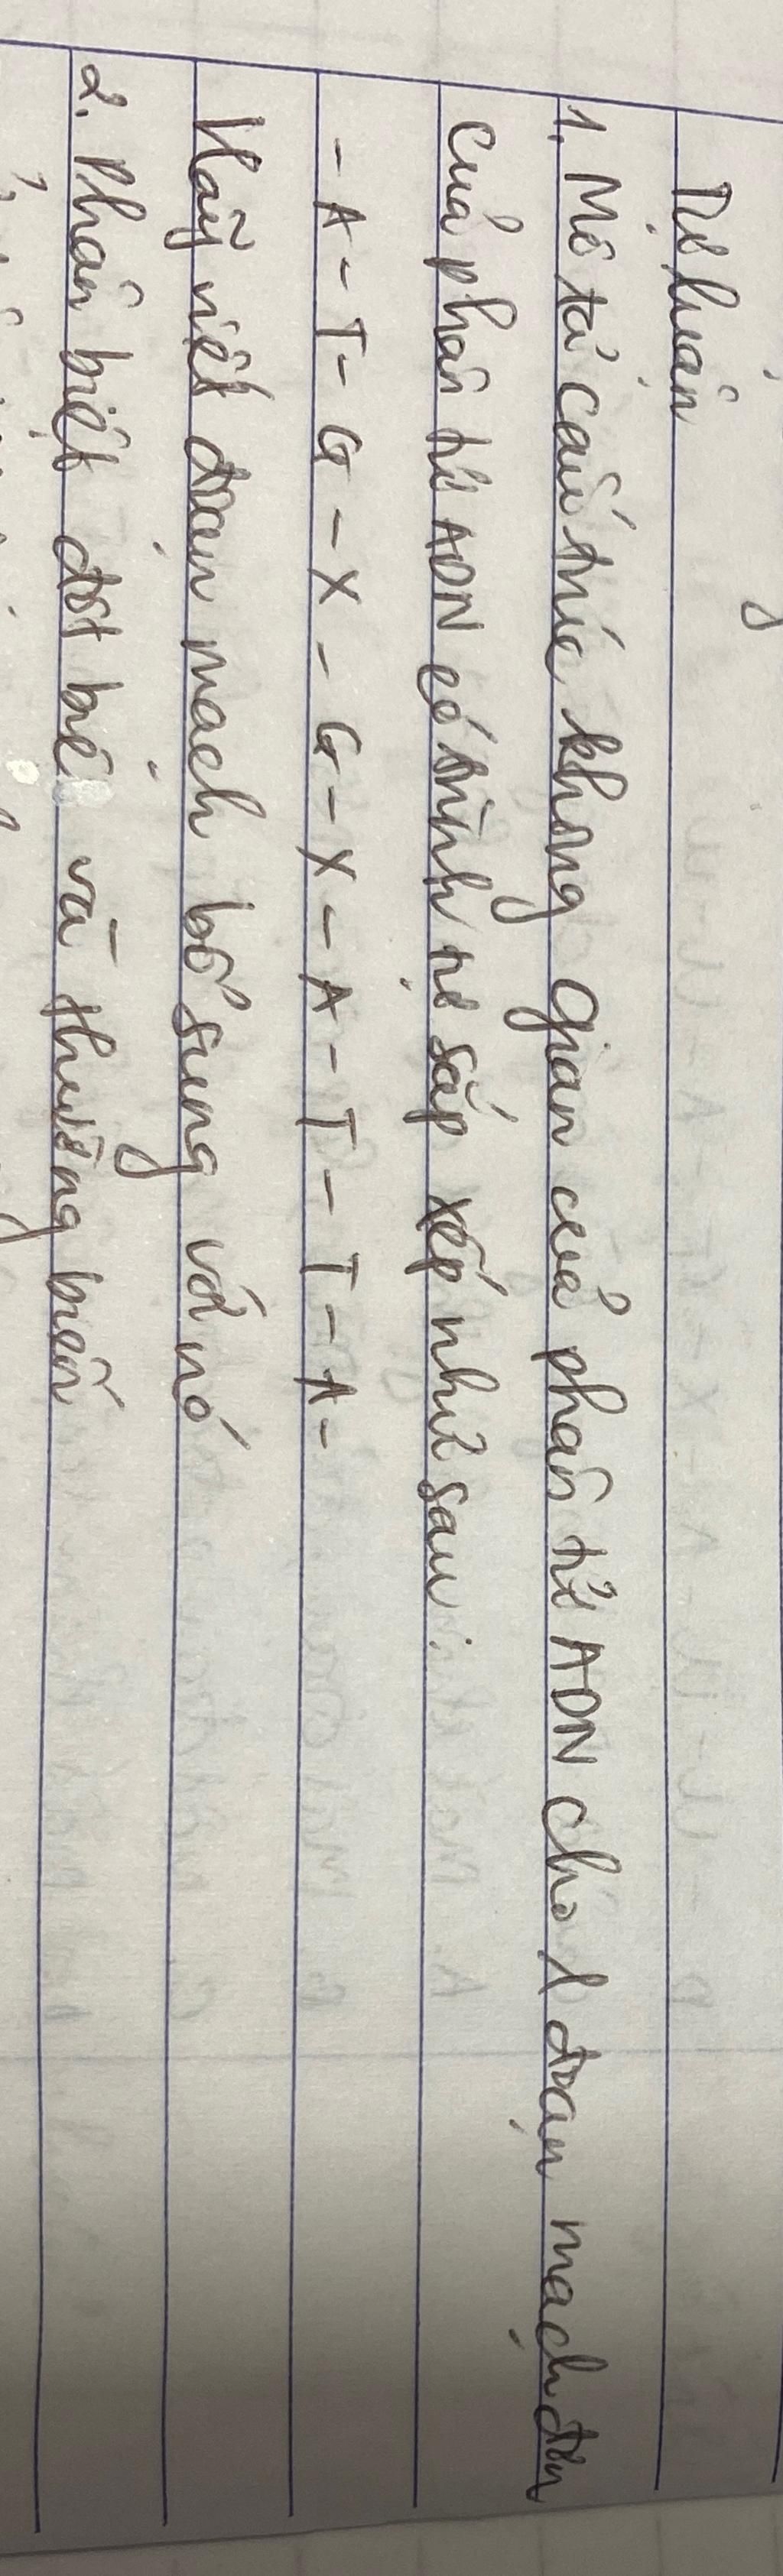 Tự luận
1. Mô tả cấu trúc không gian của phân tử ADN cho 1 đoạn mạch đơn
của phân tử ADN có trình tự sắp xếp như sau:
- A - T - G - X - G - X - A - T - T - A -
Hãy viết đoạn mạch bổ sung với nó
2. Phân biệt đột biế và thường biến